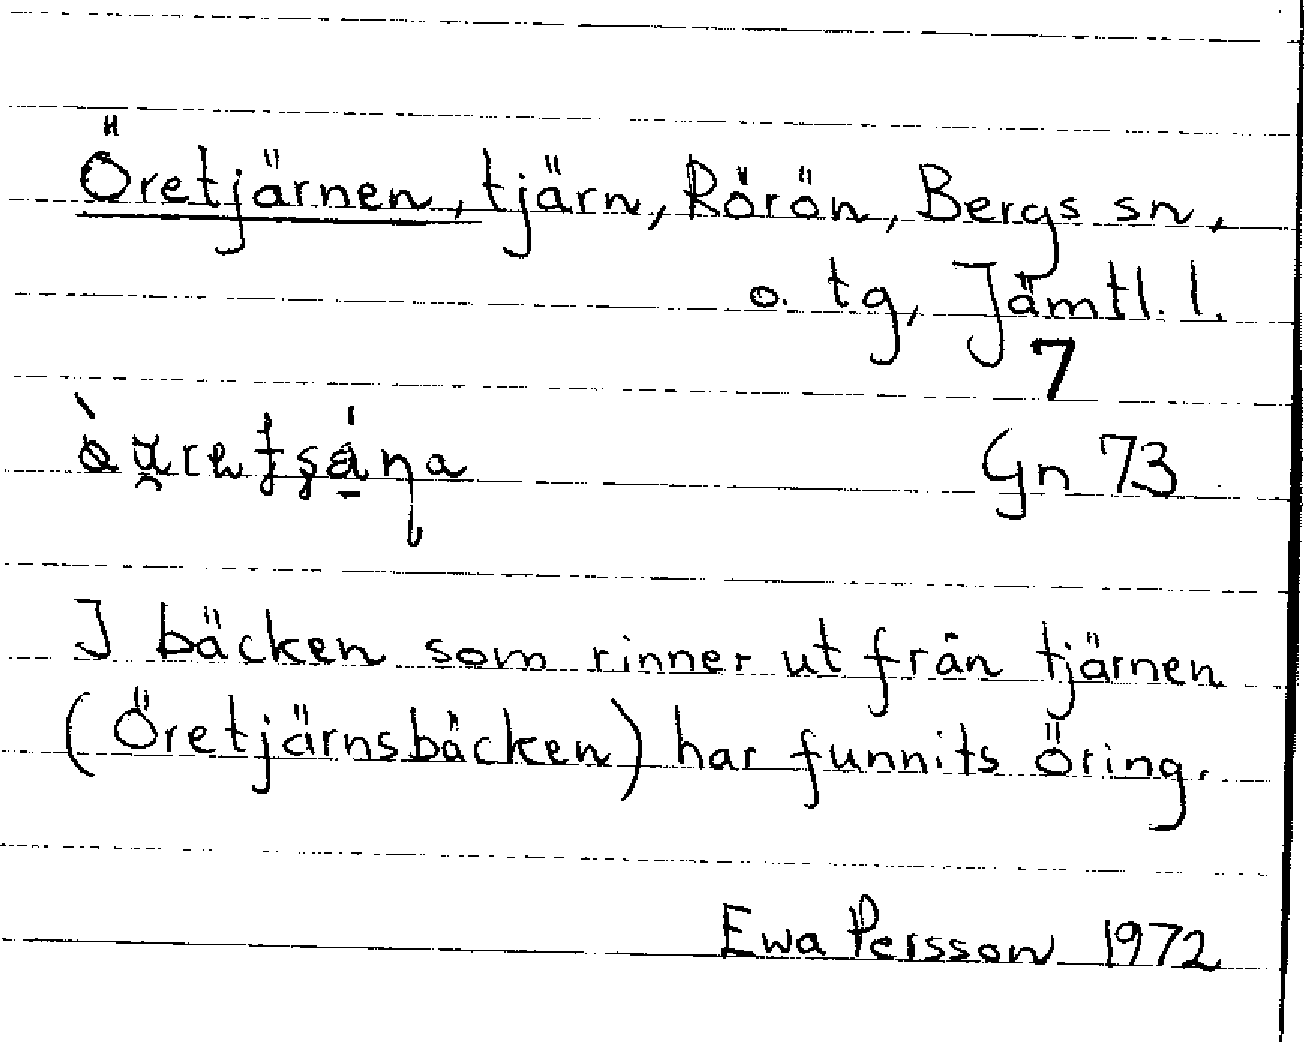 Öretjärnen, tjärn, Rörön, Bergs sn,
o. tg, Jämtl. l.
7
Gn 73
I bäcken som rinner ut från tjärnen
(Öretjärnsbäcken) har funnits öring.
Ewa Persson 1972